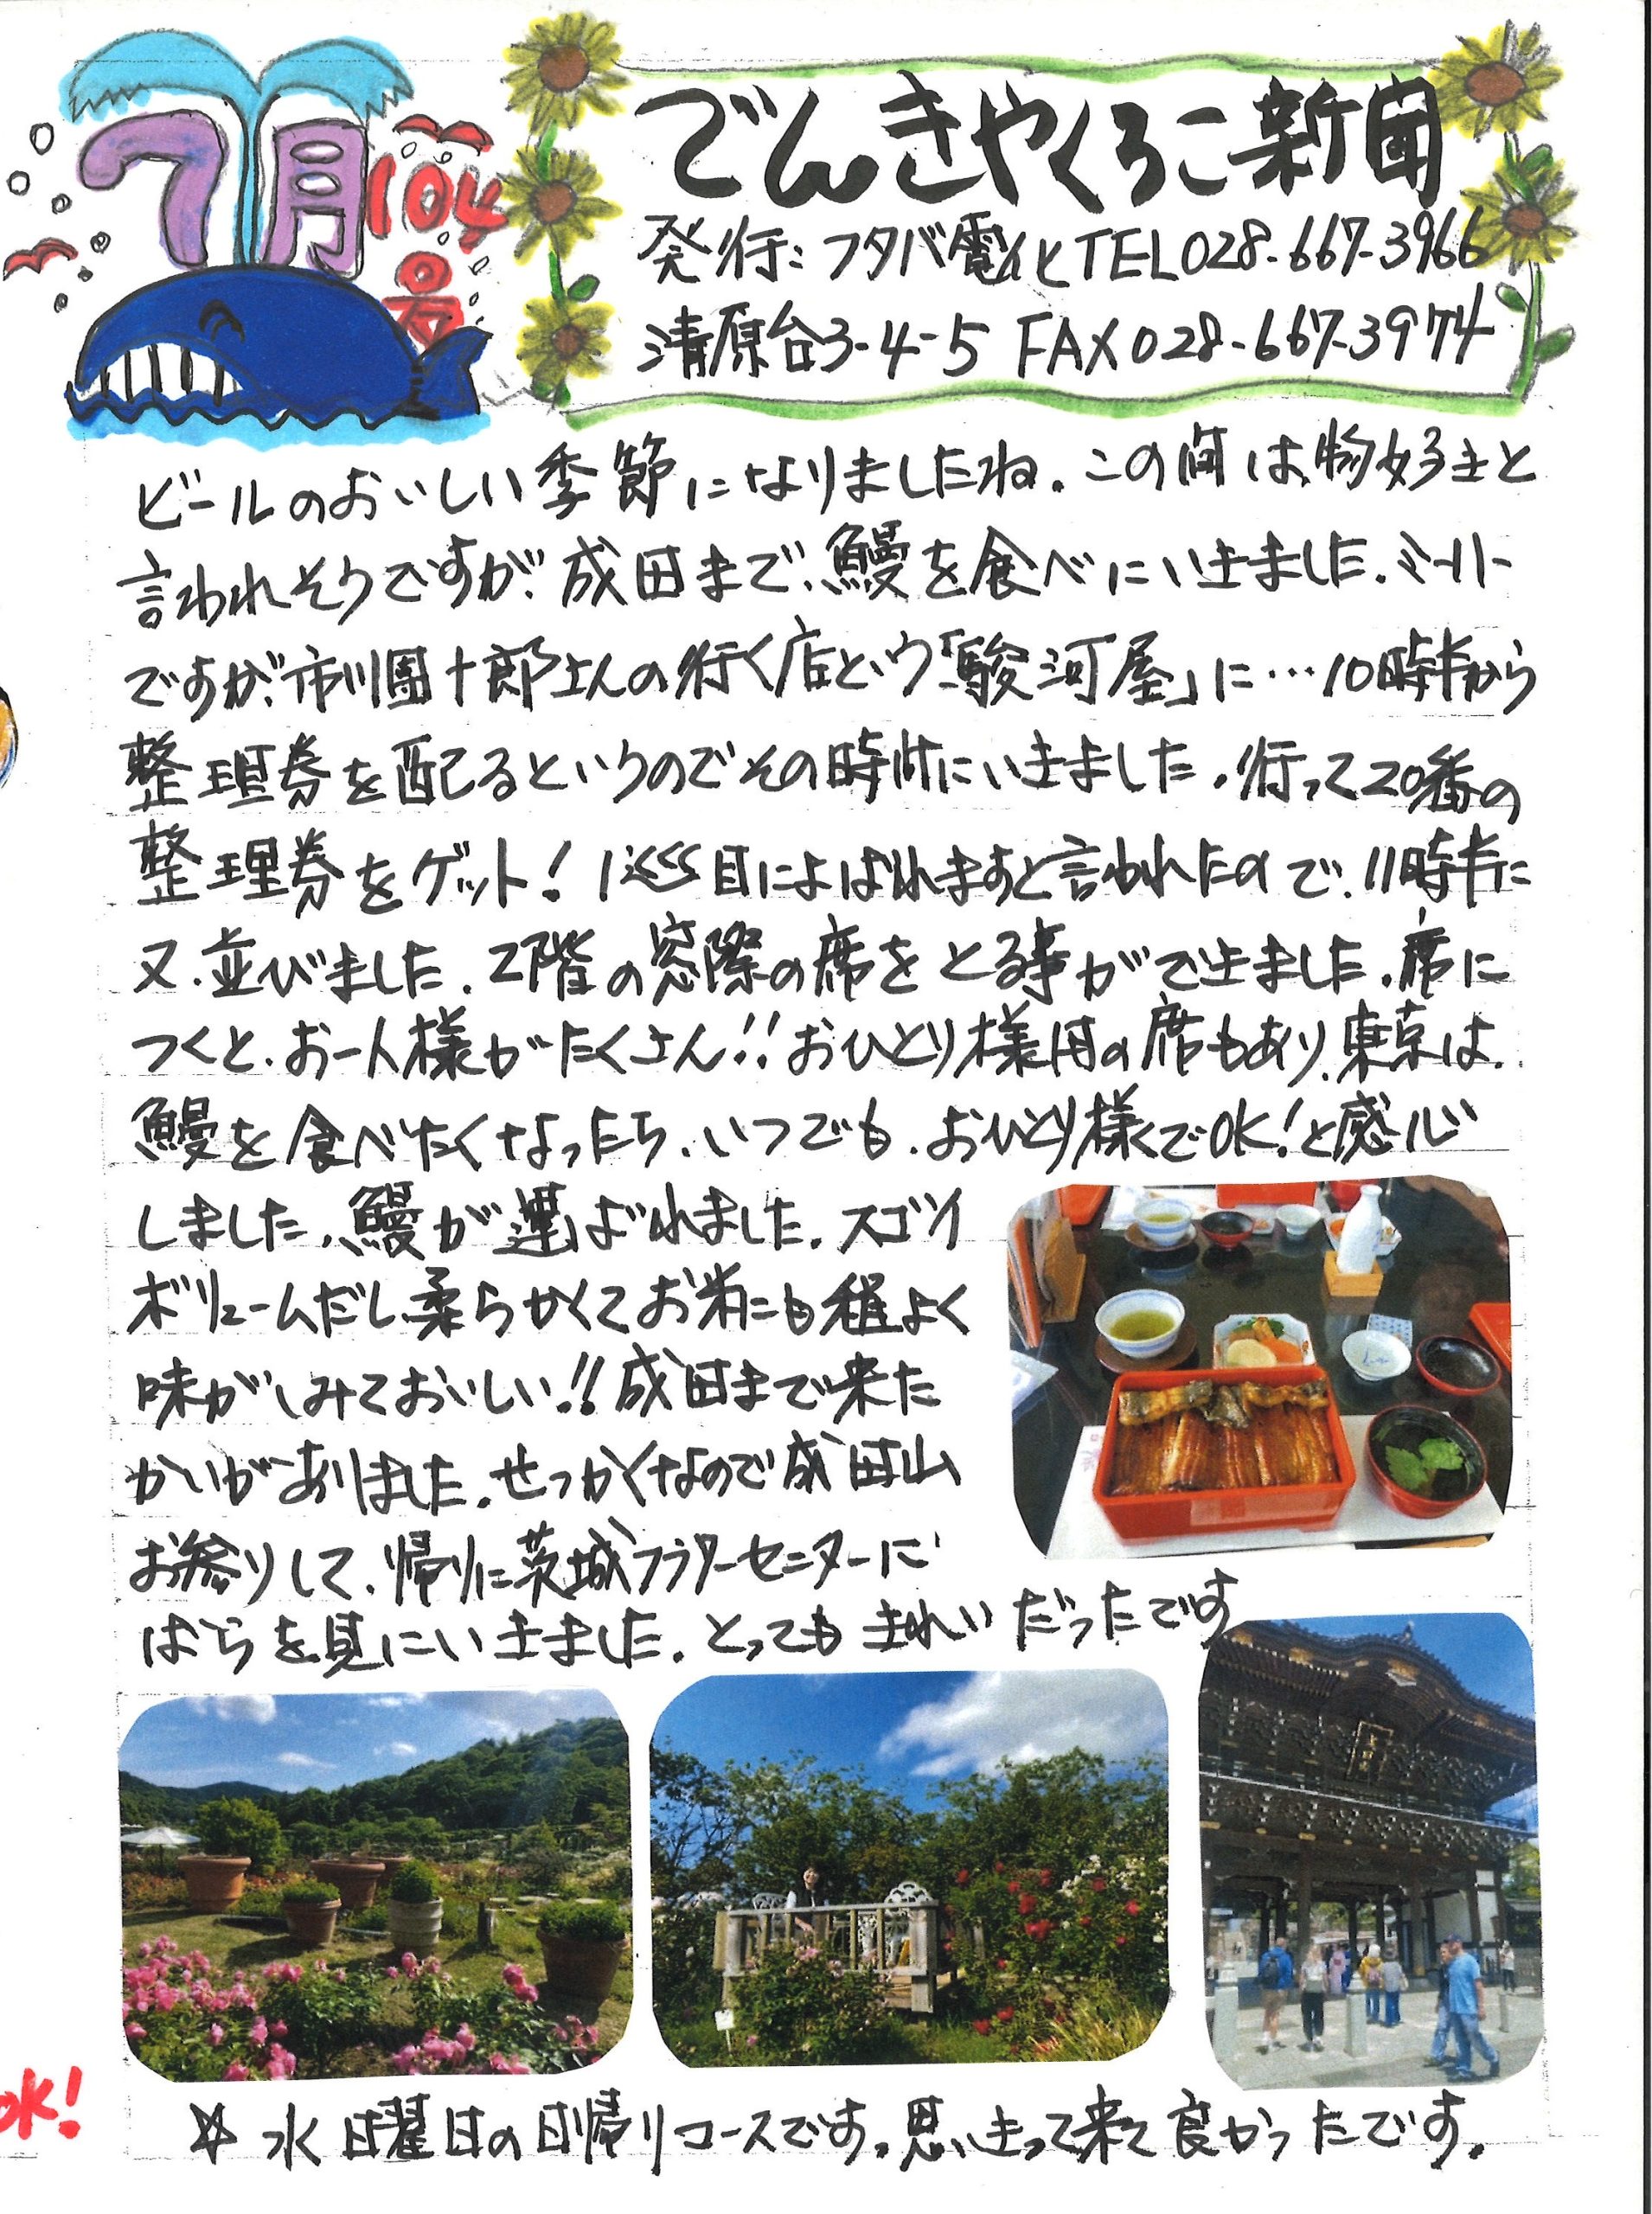 7月
104
号
でんきやくろこ新聞
発行:フタバ電化 TEL028-667-3966
清原台3-4-5 FAX028-667-3974
ビールのおいしい季節になりましたね。この間は、物好きと
言われそうですが、成田まで、鰻を食べにいきました。ミーハー
ですが、市川團十郎さんの行く店という「駿河屋」に…10時半から
整理券を配るというのでその時間にいきました。行って20番の
整理券をゲット!1巡目によばれますと言われたので、11時半に
又、並びました。2階の窓際の席をとる事ができました。席に
つくと、お一人様がたくさん!!おひとり様用の席もあり、東京は、
鰻を食べたくなったら、いつでも、おひとり様でOK!と感心
しました。鰻が運ばれました。スゴイ
ボリュームだし、柔らかくてお米にも程よく
味がしみておいしい!!成田まで来た
かいがありました。せっかくなので成田山
お参りして、帰りに茨城フラワーセンターに
ばらを見にいきました。とってもきれいだったです
☆水曜日の日帰りコースです。思いきって来て良かったです。
OK!